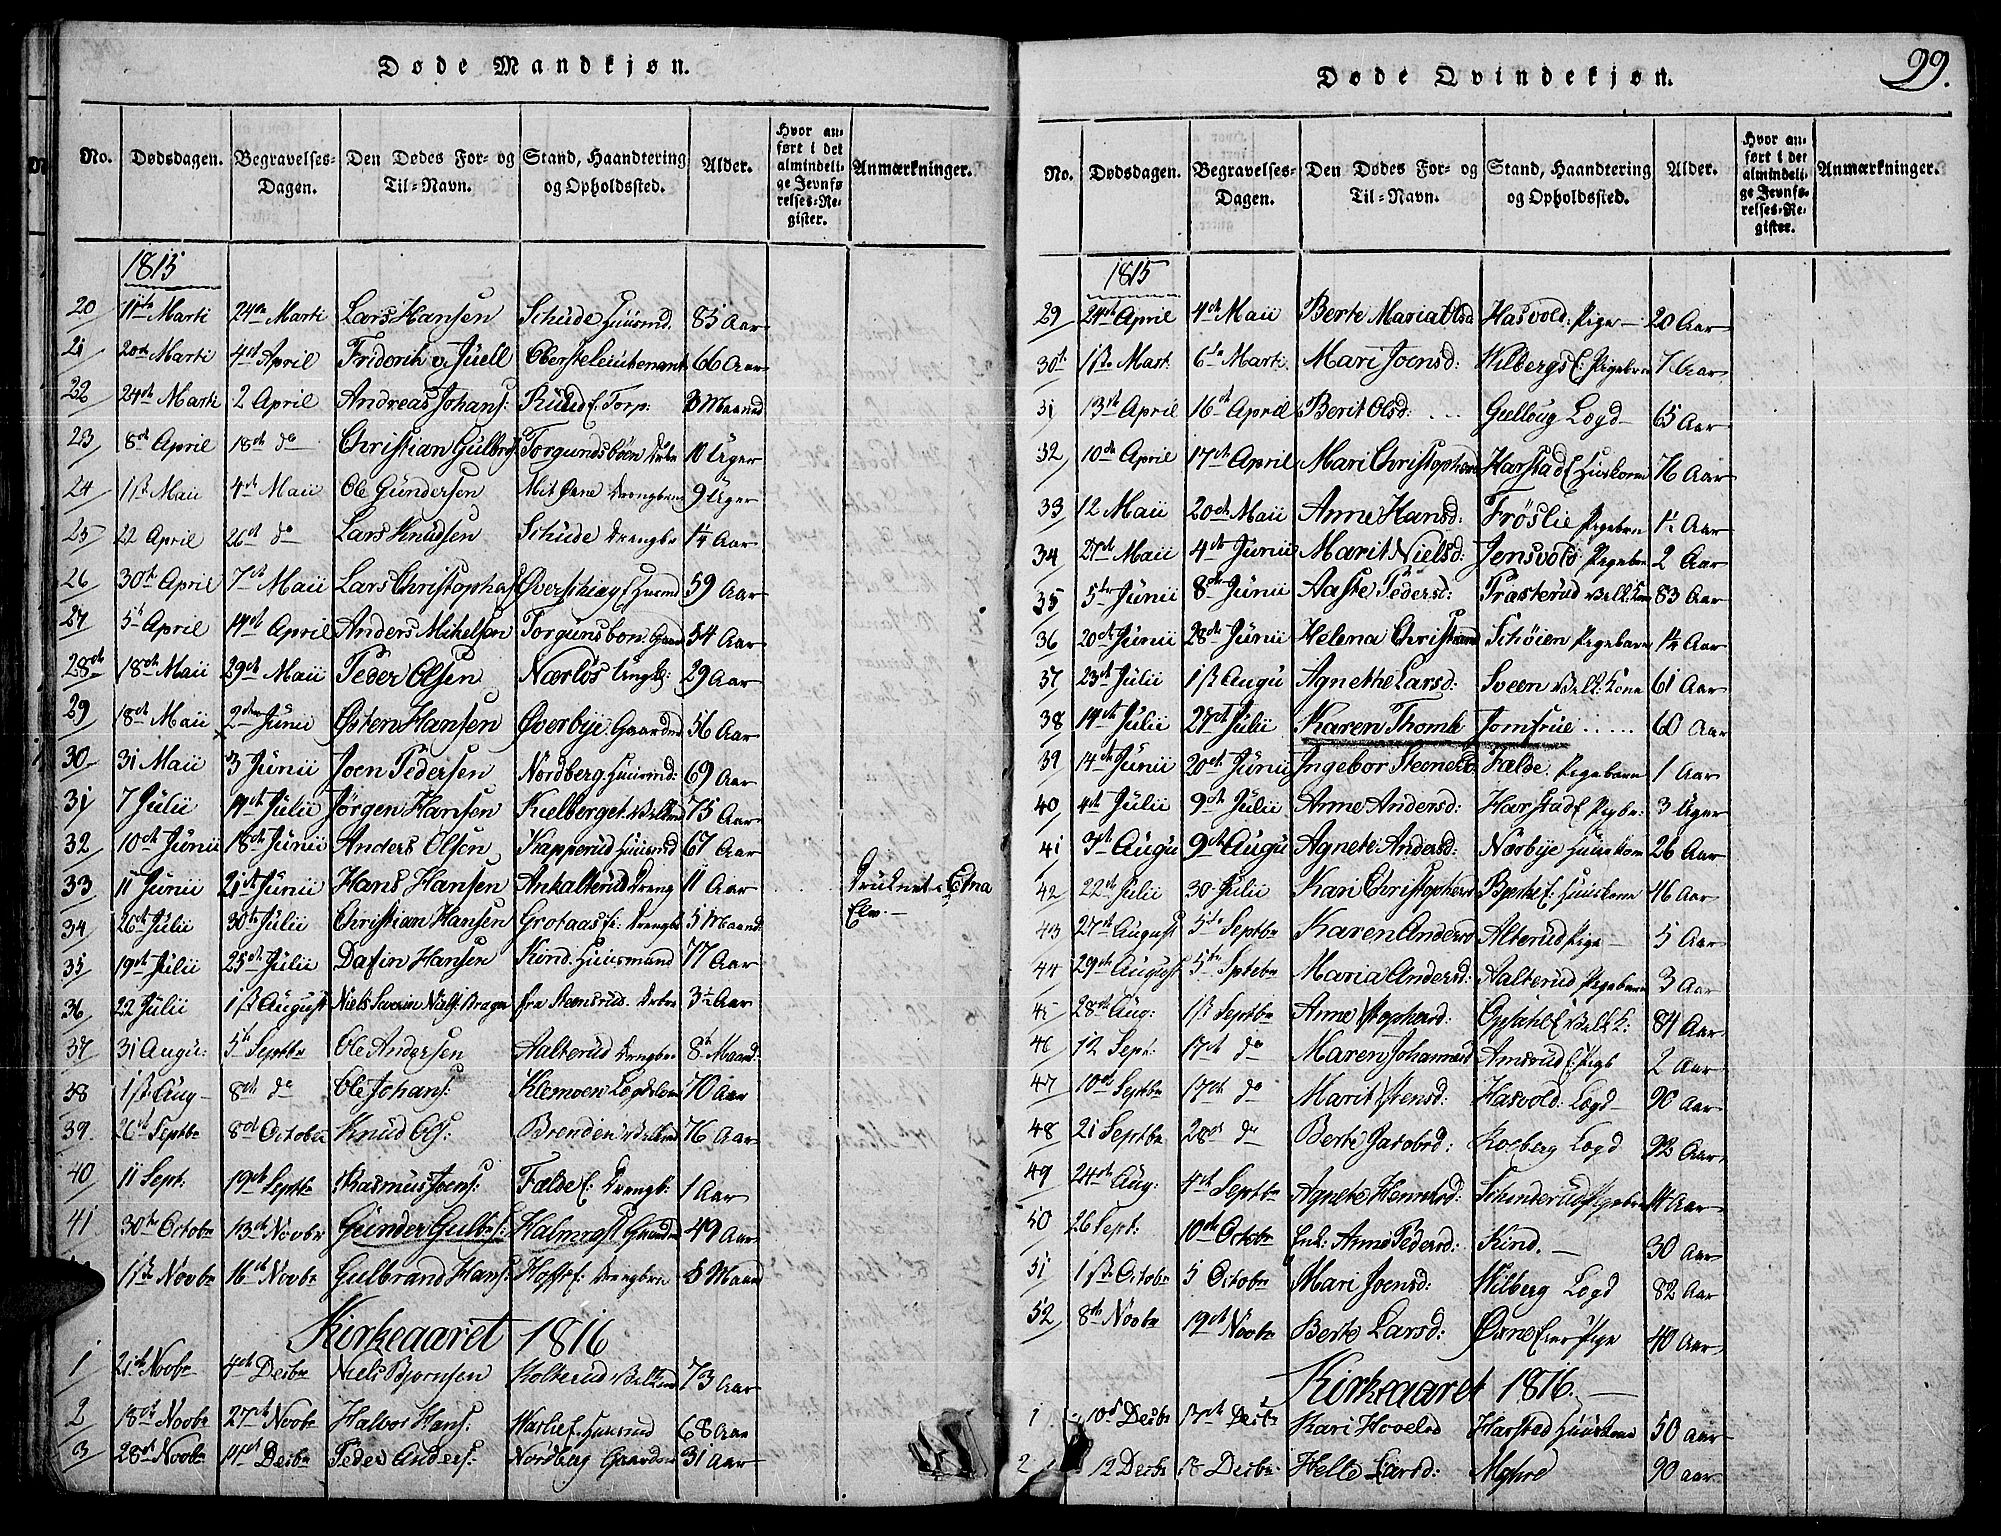 Døde Mandkjøn.
No. Dødsdagen. Begravelses-Dagen. Den Dødes For- og Til-Navn. Stand, Haandtering og Opholdssted. Alder. Hvor anført i det almindelige Jevnførelses-Register. Anmærkninger.
1815
20 11te Marti 24de Marti Lars Hansen Schude Huusmd. 85 Aar
21 20de Marti 4de April Fridorik v. Juell Obersteleutenant 66 Aar
22 24de Marti 2 April Andreas Johans: Ruud E. Torp: 3 Maaned
23 8de April 18de do Christian Gulbr Torgundsboen 10 Uger
24 1ste Maii 4de Maii Ole Gundersen Drengbarn 9 Uger
25 22 April 26de do Lars Knudsen Schude Drengbn 1¼ Aar
26 30te April 7de Maii Lars Christophers 59 Aar
27 5te April 14de April Anders Mikelsen Torgunsbon: Gaard 54 Aar
28de 18de Maii 29de Maii Peder Olsen Nærløs Ungk: 29 Aar
29 18de Maii 2den Junii Østen Hansen Øverbye Gaardmd 56 Aar
30 31 Maii 3 Junii Joen Pedersen Nordberg. Huusmd: 69 Aar
31 7 Julii 14de Julii Jørgen Hansen Kielberget 75 Aar
32 10de Junii 18de Junii Anders Olsen Kapperud Huusmd 67 Aar
33 11 Junii 21de Junii Hans Hansen Ankalterud Dreng 11 Aar Druknet i Etna
Elv. -
34 26de Julii 30te Julii Christian Hansen Grotaas E: Drengb 5 Maaned
35 19de Julii 25de Julii Dafin Hansen Kind. Huusmand 77 Aar
36 22 Julii 1ste August Niels Severin Niels: fra Steensrud. 3½ Aar
37 31 Augu: 5te Septbr Ole Andersen Aalterud Drengbn 8 Maaned
38 1ste Aug 8de do Ole Johans: Klemoen Lægdslem 70 Aar
39. 26de Septbr 8de October Knud Ols: Brenden 76 Aar
40 11 Sept: 19de Septbr Rasmus Joens: Fælde E: Drengb: 1 Aar
41 30te Octobr 13de Novbr Gunder Gulbr: Halmrast Gaardmd 49 Aar
11te Novbr 16de Novbr Gulbrand Hans: Hoff E: Drengbrn 8 Maaned
Kirkeaaret 1816
1 21de Novbr 4de Desbr Niels Bjørnsen Kolterud 73 Aar
2 18de Novbr 27de Novbr Halvor Hans: Huusmd 68 Aar
3 28de Novbr Desbr Peder Anders: Nordberg Gaardmd 31 Aar
99.
Døde Qvindekjøn.
No. Dødsdagen. Begravelses-Dagen. Den Dødes For- og Til-Navn. Stand, Haandtering og Opholdssted. Alder. Hvor anført i det almindelige Jevnførelses-Register. Anmærkninger.
1815
29 24de April 4de Maii Berte Maria Olsd Hasvold: Pige 20 Aar
30te 1ste Mart. 6te Marti Mari Joensd: Wilbergs E: Pigebrn 7 Aar
31 13de April 16de April Berit Olsd: Gulloug Lægd 65 Aar
32 10de April 17de April Mari Christophersd Harstad E Huskone 76 Aar
33 12 Maii 20de Maii Anne Hansd: Frøslie Pigebrn 1½ Aar
34 27de Maii 4de Junii Marit Nielsd: Jensvold Pigebrn 2 Aar
35 5te Junii 8de Junii Aaste Pedersd: Træsterud 83 Aar
36 20de Junii 28de Junii Helena Christians Schøien Pigebarn 1¼ Aar
37 23de Julii 1ste Augu Agnethe Larsd: Sveen Kone 61 Aar
38 14de Julii 27de Julii Karen Thomle Jomfrue 60 Aar
39 14de Junii 20de Junii Ingebor Steenersd Fælde. Pigebarn 1 Aar
40 4de Julii 9de Julii Anne Andersd: Harstad E Pigbr: 3 Uger
41 3de Augu 9de Augu Agnete Andersd: Nørbye Huuskone 26 Aar
42 22de Julii 30 Julii Kari Christophersd Huuskone 46 Aar
43 27de August 5te Septbr Karen Andersd Alterud Pige 5 Aar
44 29de August 5te Septbr Maria Andersd: Aalterud Pigebarn 3 Aar
45 28de Aug: 1ste Septbr Anne Stephensd: Opsahl E 84 Aar
46 12 Sept: 17de do Maren Johannesd Amsrud E: Pige 2 Aar
47 10de Septbr 17de do Marit Stensd: Hasvold: Lægd 90 Aar
48 21 Septbr 28de do Berte Jacobsd: Koeberg Lægd 92 Aar
49 24de Aug: 4de Septbr Agnete Henriksd: Schinderud Pigebrn Aar
50 26 Sept: 10de Octobr Enk: Anne Pedersd: Kind. 30 Aar
51 1ste Octobr 5 Octobr Mari Joensd: Wilberg Lægd 82 Aar
52 8de Novbr 19de Novbr Berte Larsd: Pige 40 Aar
Kirkeaaret 1816.
1 10de Desbr 17de Desbr Kari Hovelsd Harstad Huuskone 50 aar
2 12 Desbr 18 Desbr Helle Larsd: Myhre 90 aar